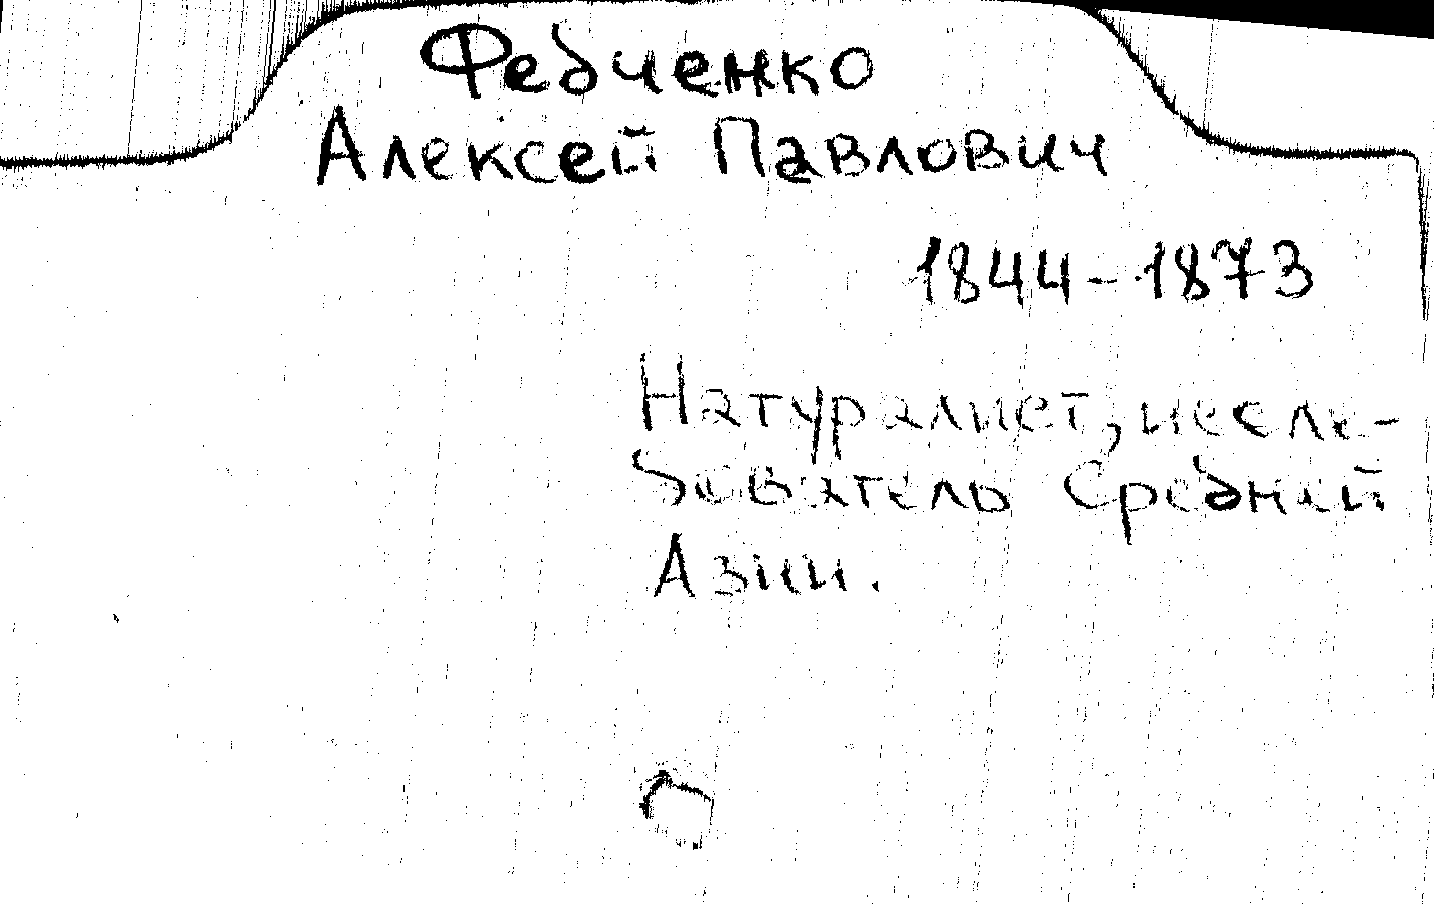 Федченко
Алексей Павлович
1844-1873
Натуралист, иссле-
дователь Средней
Азии.